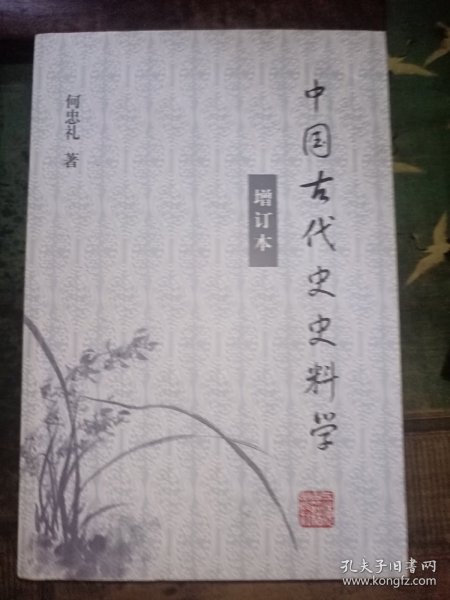 中国古代史史料学
增订本
何忠礼 著
孔夫子旧书网
www.kongfz.com